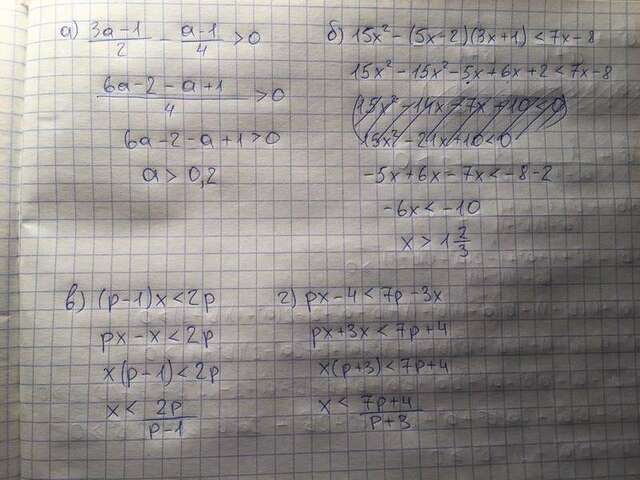 а) (3a-1)/2 - (a-1)/4 > 0
(6a-2-a+1)/4 > 0
6a-2-a+1>0
a > 0,2
б) 15x² - (5x-2)(3x+1) < 7x-8
15x² - 15x² - 5x + 6x + 2 < 7x - 8
15x² - 21x + 10 < 0
-5x + 6x - 7x < -8 - 2
-6x < -10
x > 1 2/3
в) (p-1)x < 2p
px - x < 2p
x(p-1) < 2p
x < 2p/(p-1)
г) px - 4 < 7p - 3x
px + 3x < 7p + 4
x(p+3) < 7p + 4
x < (7p+4)/(p+3)